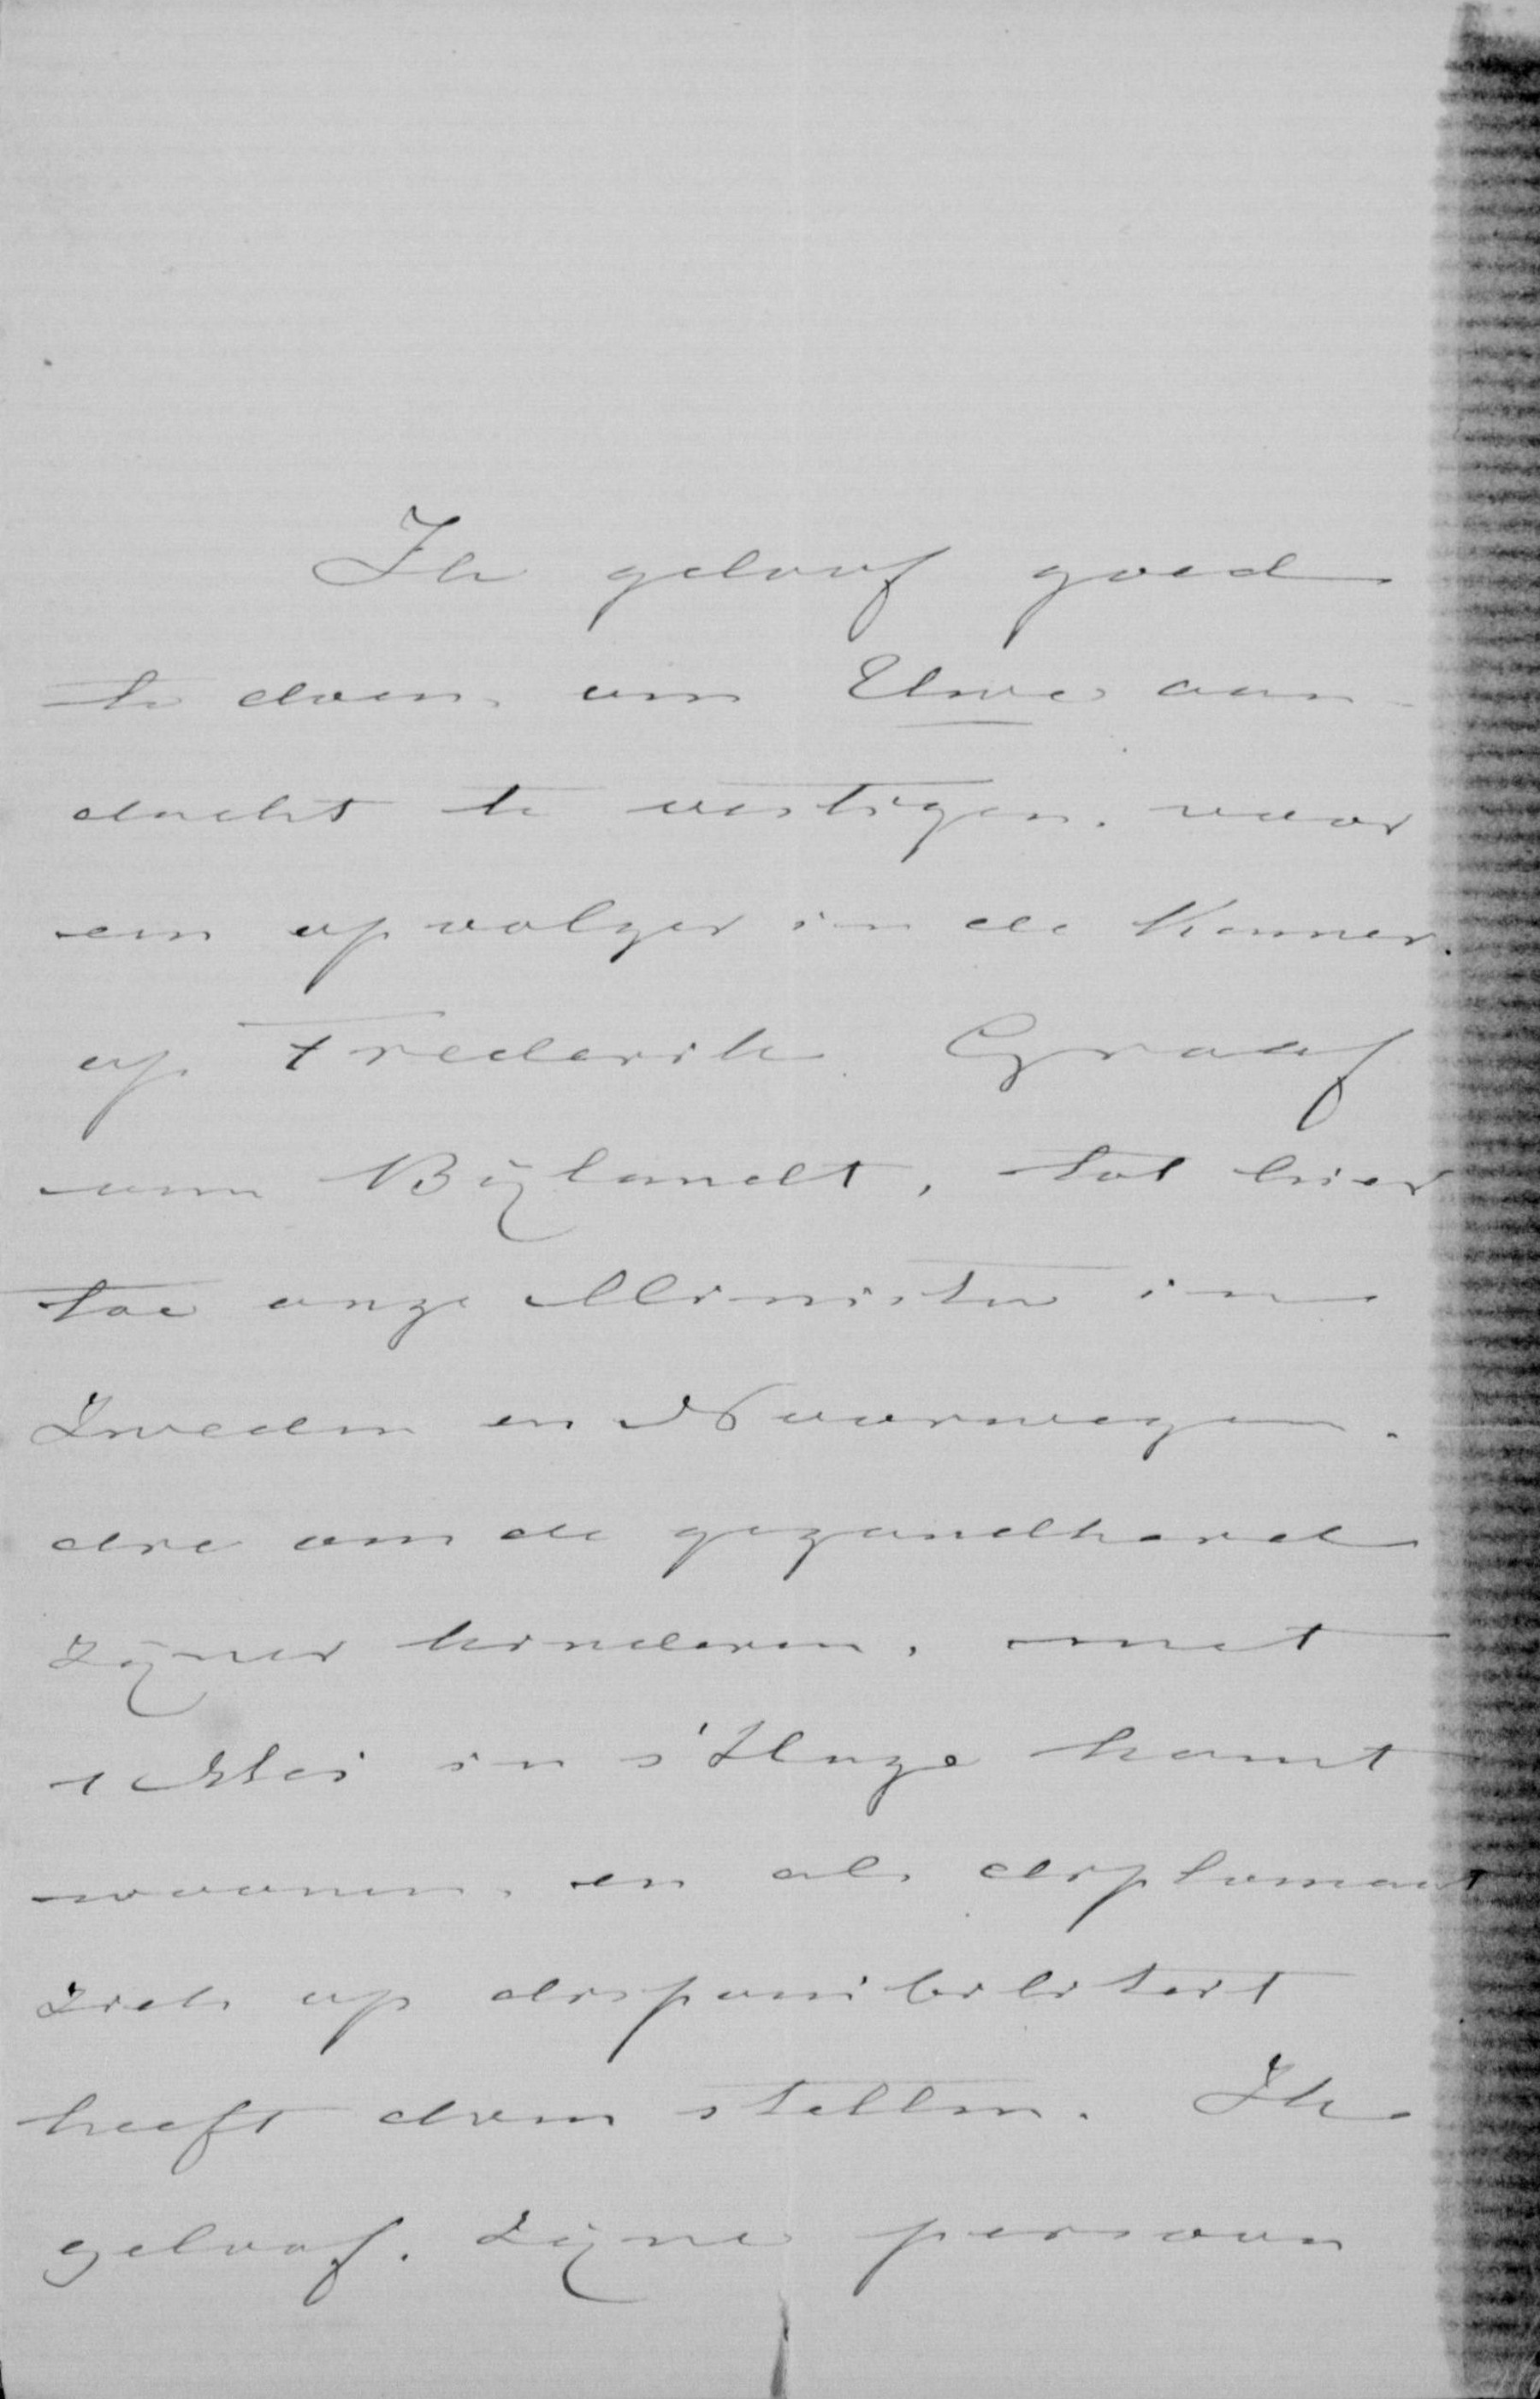 Ik geloof goed
te doen, om Uwe aan-
dacht te vestigen, voor
een opvolger in de Kamer.
op Frederik Graaf
van Bijlandt, tot hier
toe onze Minister in
Zweden en Noorwegen.
die om de gezondheid
zijner kinderen, met
1 Mei in s'Hage komt
woonen, en als diplomaat
zich op disponibiliteit
heeft doen stellen. Ik
geloof. zijne persoon